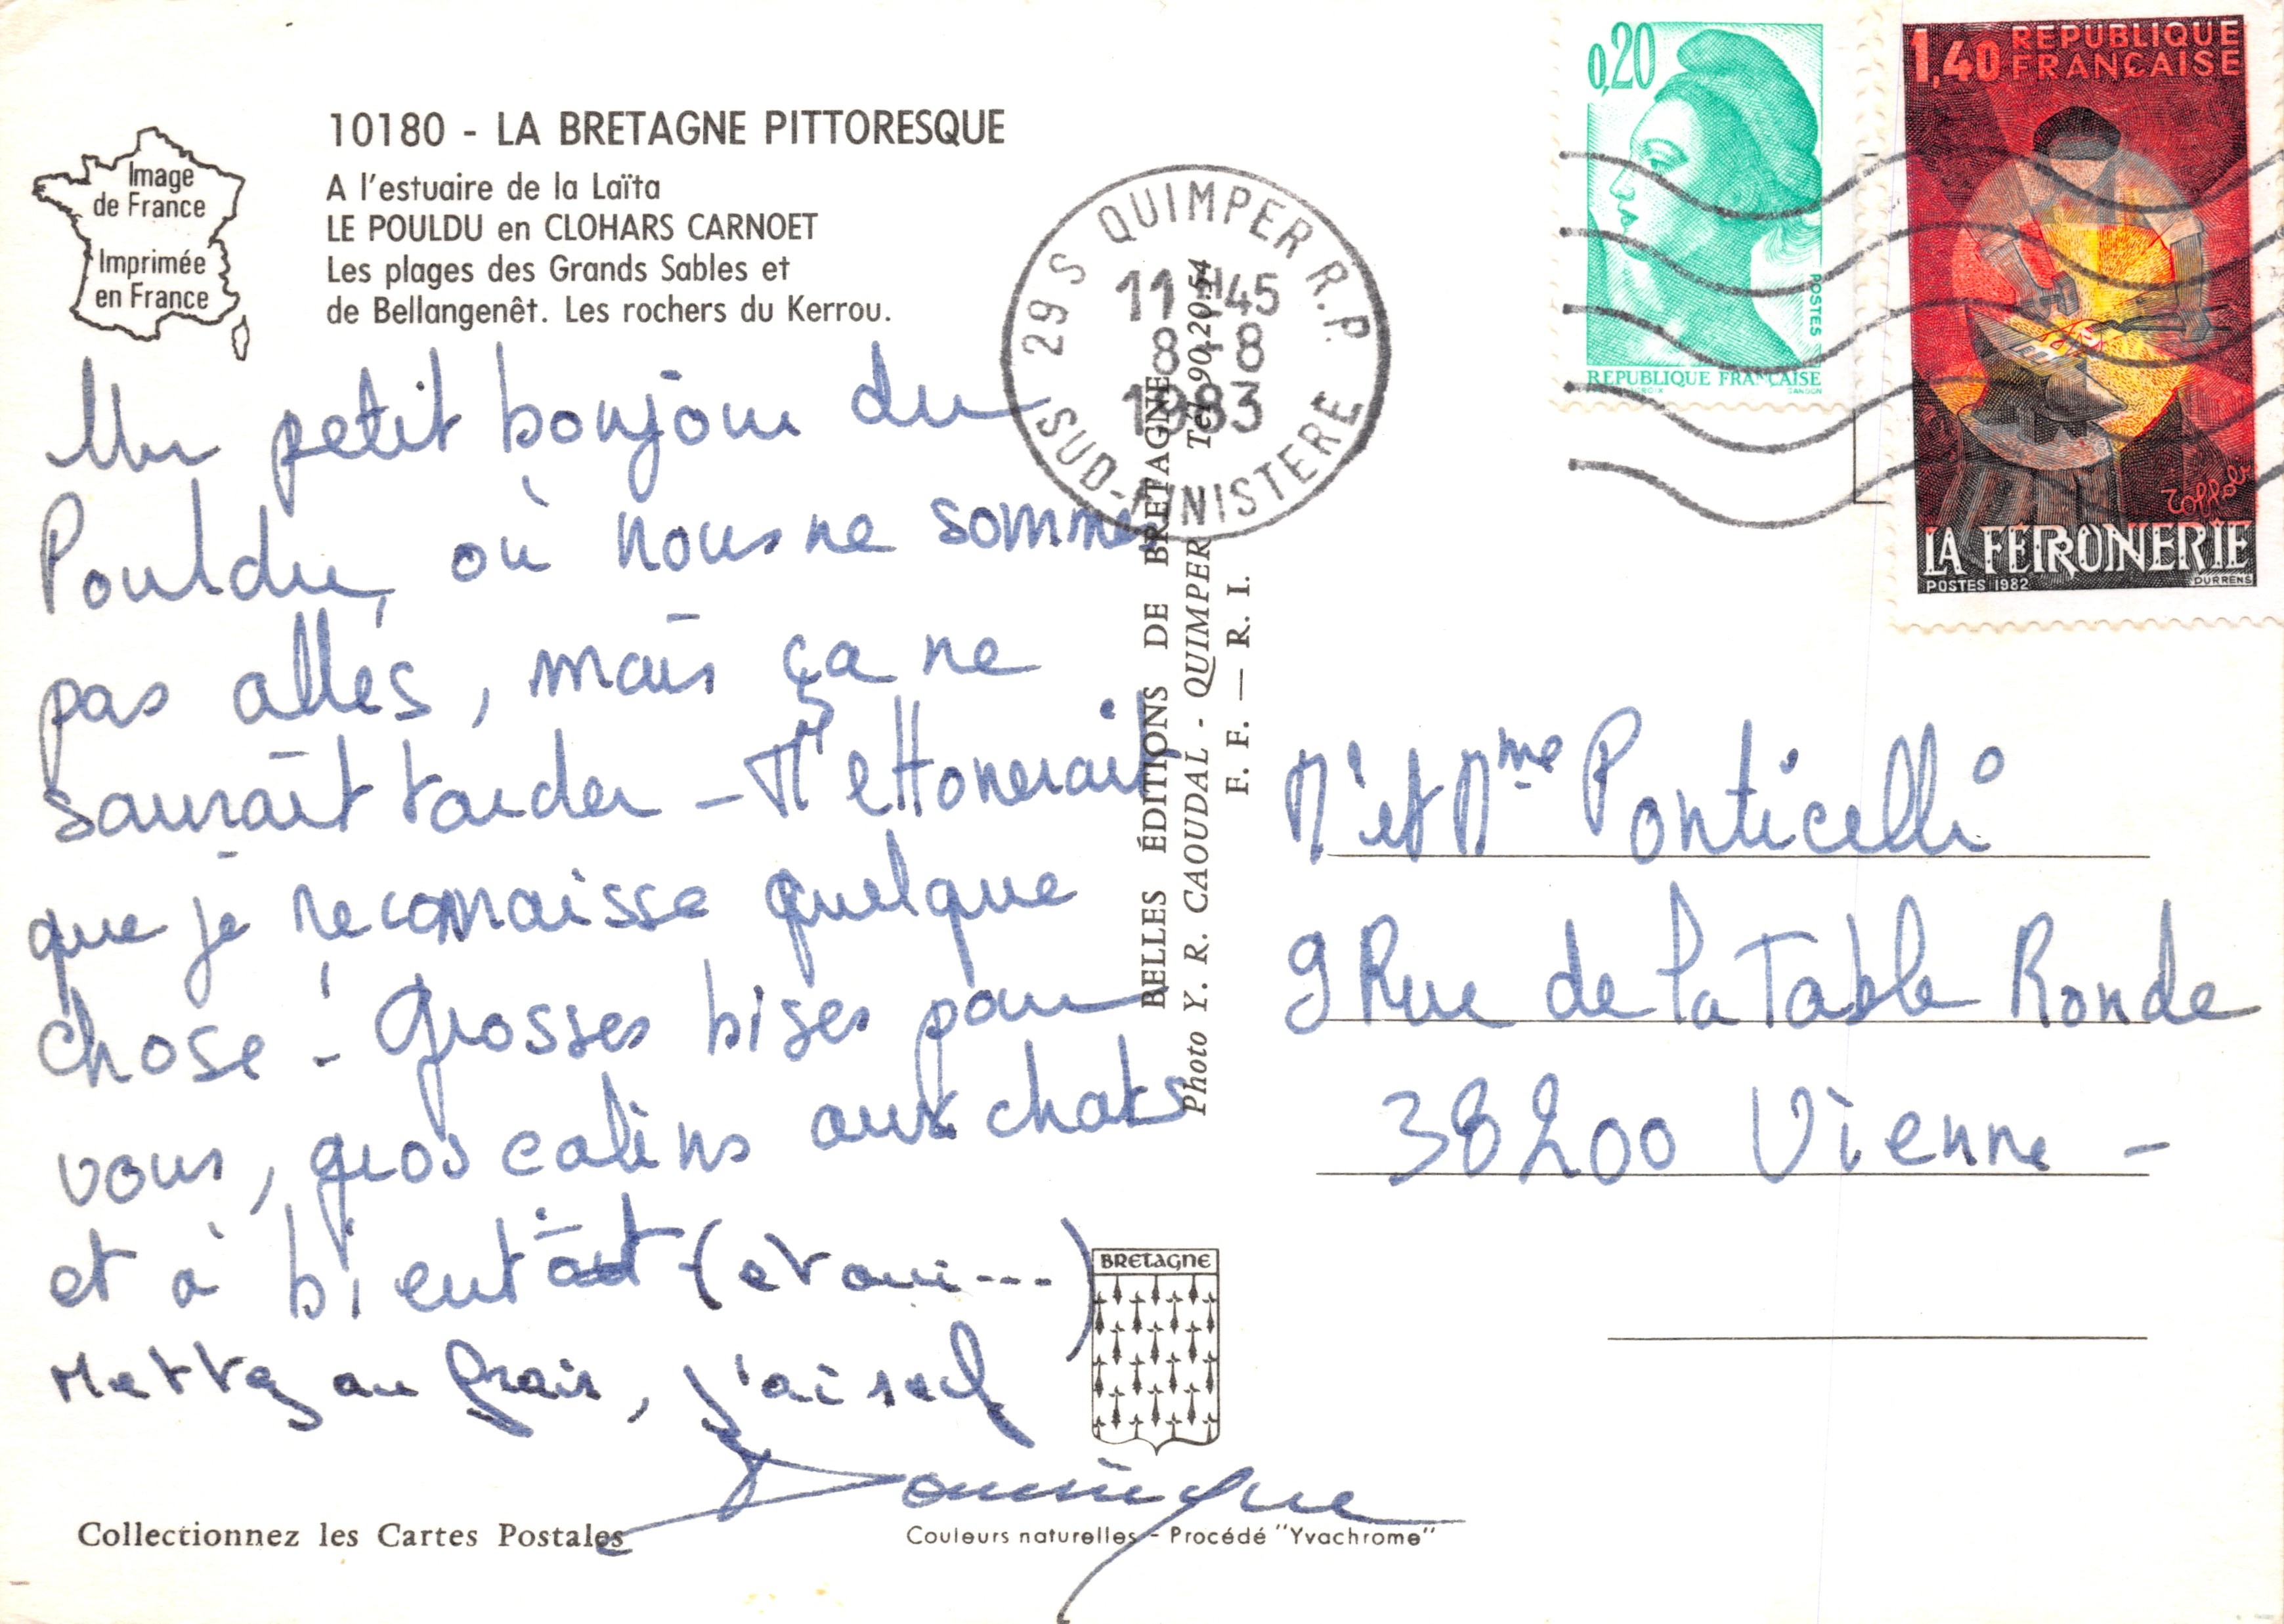 10180 - LA BRETAGNE PITTORESQUE
A l'estuaire de la Laïta
LE POULDU en CLOHARS CARNOET
Les plages des Grands Sables et
de Bellangenêt. Les rochers du Kerrou.
Image
de France
Imprimée
en France
Un petit bonjour du
Pouldu, où nous ne sommes
pas allés, mais ça ne
saurait tarder - M'ettonerait
que je reconnaisse quelque
chose! - Grosses bises pour
vous, gros calins aux chats
et à bientôt (et oui ---)
Mettez au frais, j'ai soif
Dominique
Collectionnez les Cartes Postales
29 S QUIMPER R.P.
11H45
8-8
1983
SUD-FINISTERE
BELLES ÉDITIONS DE BRETAGNE
Photo Y. R. CAOUDAL - QUIMPER Tél. 90.20.54
F. F. — R. I.
BRETAGNE
Couleurs naturelles - Procédé "Yvachrome"
0,20
POSTES
REPUBLIQUE FRANÇAISE
GANDON
1,40 REPUBLIQUE
FRANÇAISE
Toffoli
LA FERRONERIE
POSTES 1982 DURRENS
Mr et Mme Ponticelli
9 Rue de la Table Ronde
38200 Vienne -